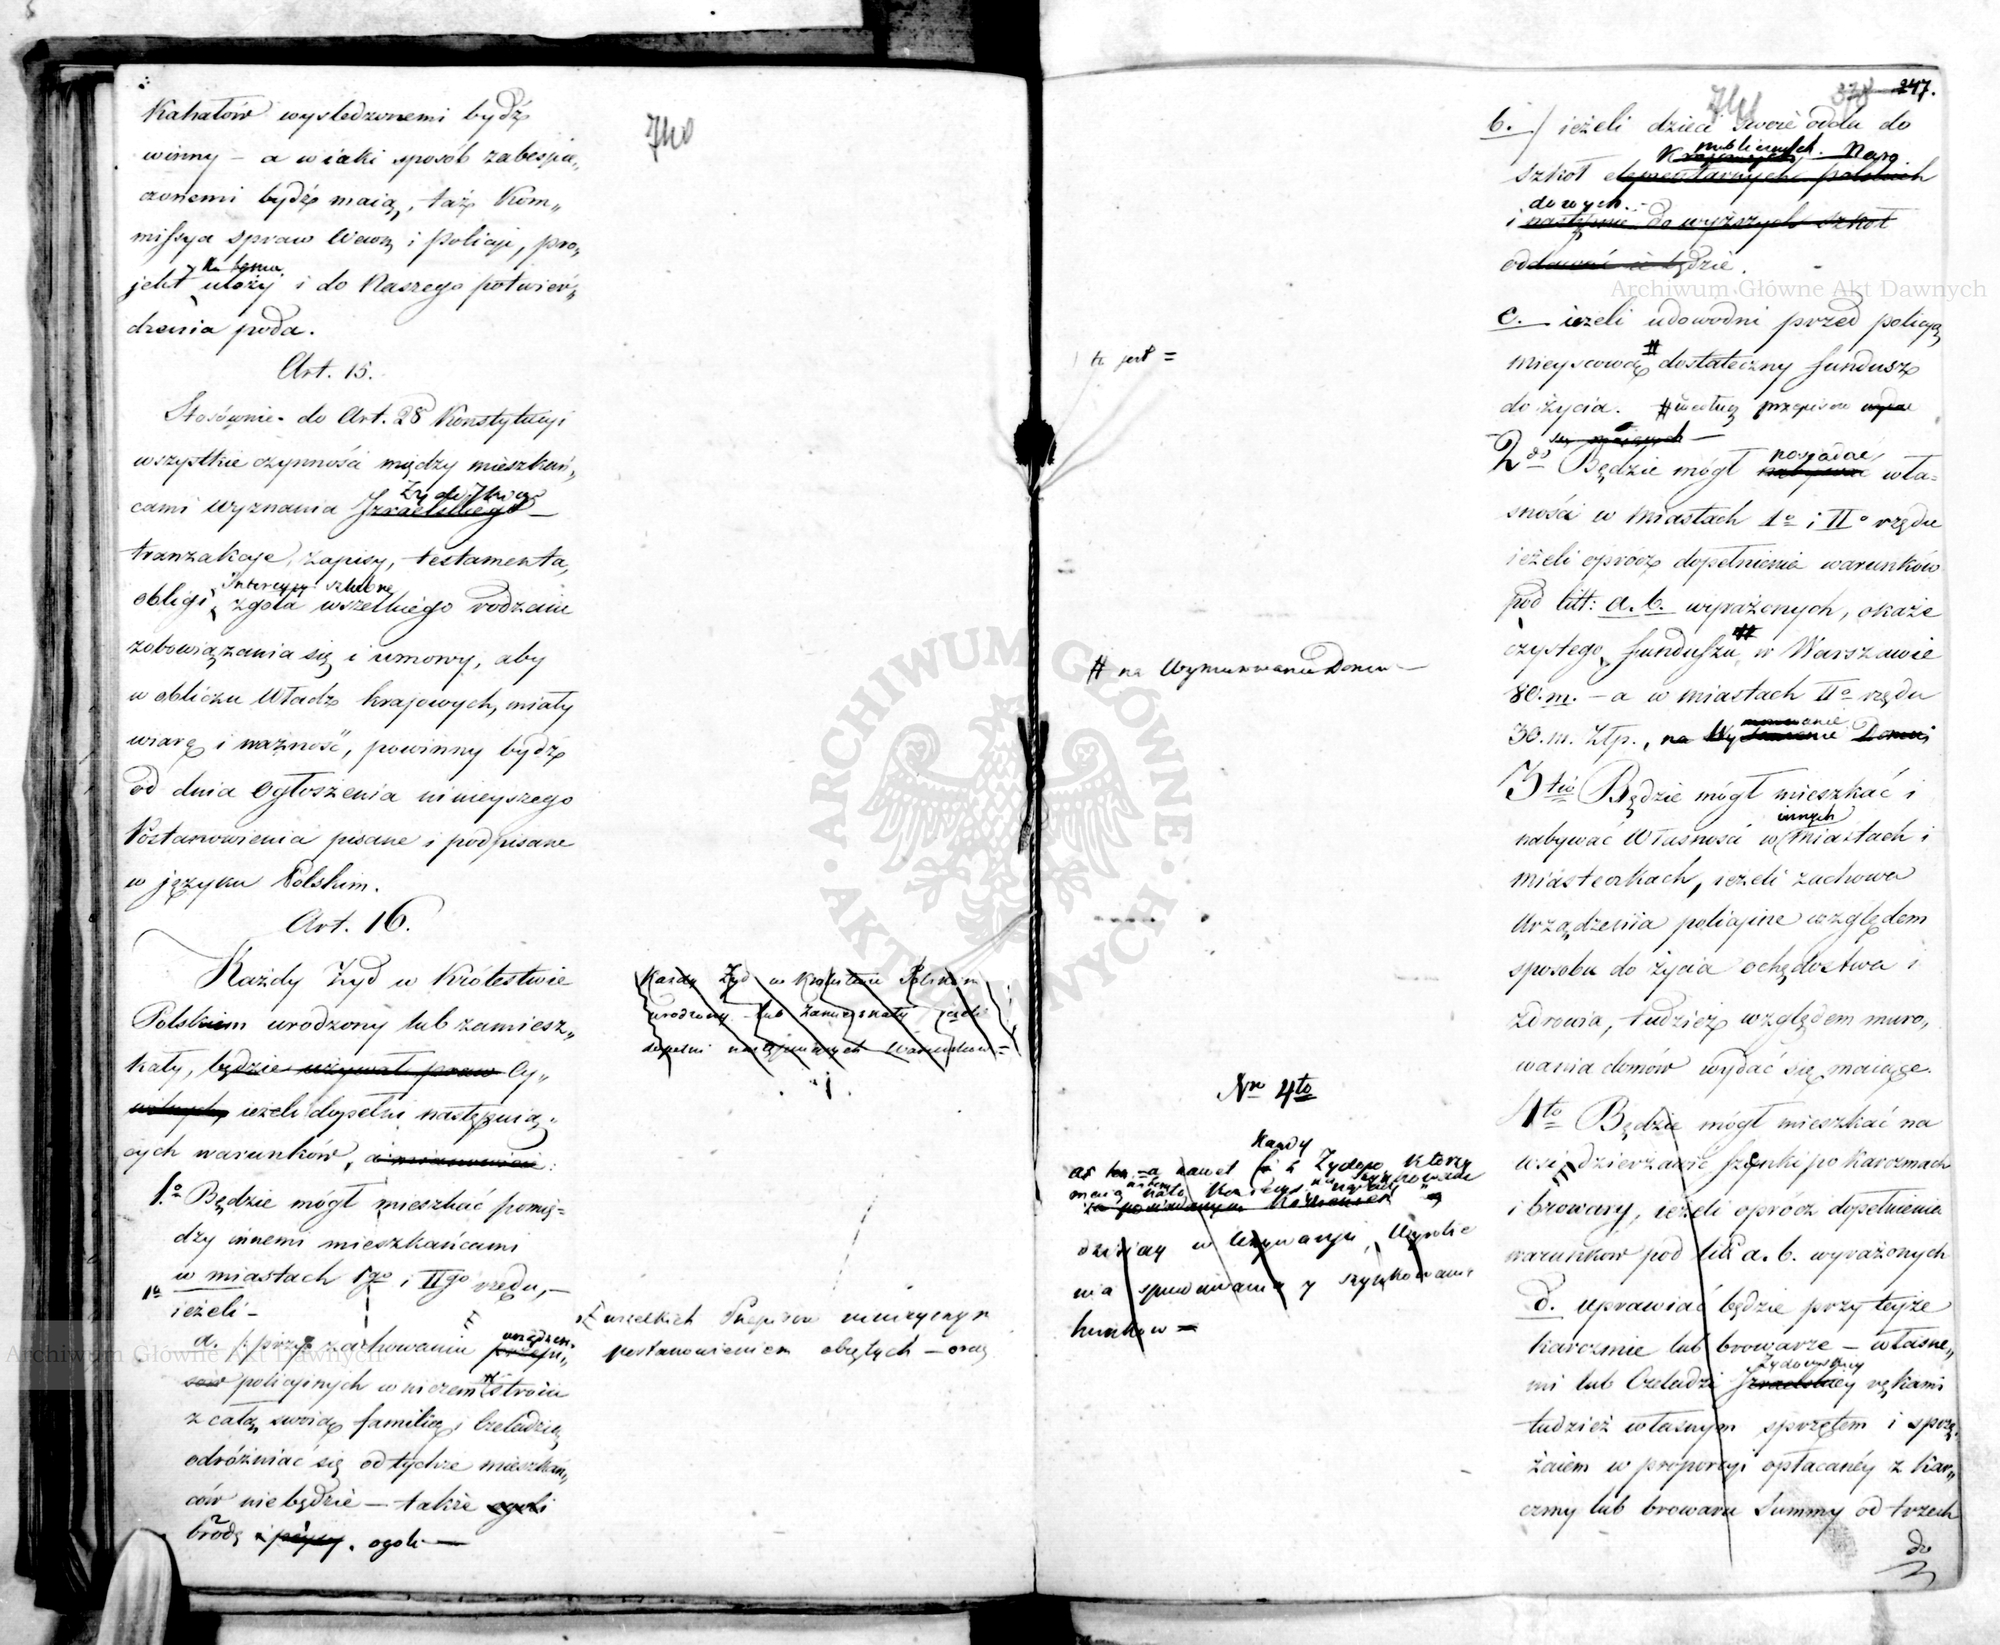 740
Kahałów wyśledzonemi bydź
winny – a w iaki sposób zabespie„
czonemi bydź maią, taż Kom„
missya Spraw Wewn: i Policyi, pro„
jekt ku temu ułoży i do Naszego potwier„
dzenia poda.
Art. 15.
Stosównie do Art. 28 Konstytucyi
wszystkie czynności między mieszkań„
cami wyznania Izraelskiego Żydowskiego
tranzakcye, zapisy, testamenta,
obligi, Intercyzy szlubne, zgoła wszelkiego rodzaiu
zobowiązania się i umowy, aby
w obliczu Władz krajowych, miały
wiarę i ważność, powinny bydź
od dnia ogłoszenia ninieyszego
Postanowienia pisane i podpisane
w języku Polskim.
Art. 16.
Każdy Żyd w Królestwie
Polskiem urodzony lub zamiesz„
kały, będzie używał praw Cy„
wilnych, ieżeli dopełni następuią„
cych warunków, a mianowicie:
1.o Będzie mógł mieszkać pomię=
dzy innemi mieszkańcami
w miastach Igo i IIgo rzędu, –
ieżeli –
a. przy zachowaniu przepi„ urządzeń
sów policyinych w niczem w stroiu
z całą swoią familią i Czeladzią
odróżniać się od tychże mieszkań„
ców nie będzie – także ogoli
brodę i peysy. ogoli –
Każdy Żyd w Królestwie Polskim
urodzony lub zamieszkały jeżeli
dopełni następuiących warunków =
wszelkich Przepisów ninieyszym
postanowieniem obiętych – oraz
247.
to jest =
# na Wymurowanie Domu –
Nro 4to
Każdy
dzisiay w używaniu,
b.) ieżeli dzieci swoie odda do
szkół elementarnych polskich Krajowych publicznych Naro
dowych. –
i następnie do wyższych szkół
oddawać ie będzie.
c. ieżeli udowodni przed policyą
mieyscową # dostateczny fundusz
do życia. # według przepisów wydać
się maiących –
2do Będzie mógł nabywać posiadać wła=
sności w miastach Io i IIo rzędu
ieżeli oprócz dopełnienia warunków
pod litt: a. b. wyrażonych, okaże
czystego funduszu # w Warszawie
80.m. – a w miastach IIo rzędu
30.m. Złp., na Wystawienie murowanie Domu
3tio Będzie mógł mieszkać i
nabywać Własności w innych miastach i
miasteczkach, ieżeli zachowa
Urządzenia policyine względem
sposobu do życia ochędostwa i
zdrowia, tudzież względem muro„
wania domów wydać się maiące.
4to Będzie mógł mieszkać na
wsi dzierżawić szynki po karczmach
i browary, ieżeli oprócz dopełnienia
warunków pod litt a. b. wyrażonych
d. uprawiać będzie przy teyże
karczmie lub browarze – własne„
mi lub Czeladzi Izraelskiey Żydowskiey rękami
tudzież własnym sprzętem i sprzę„
żaiem w proporcyi opłacanéy z kar„
czmy lub browaru Summy od trzech
do
Archiwum Główne Akt Dawnych
Archiwum Główne Akt Dawnych
ARCHIWUM GŁÓWNE AKT DAWNYCH